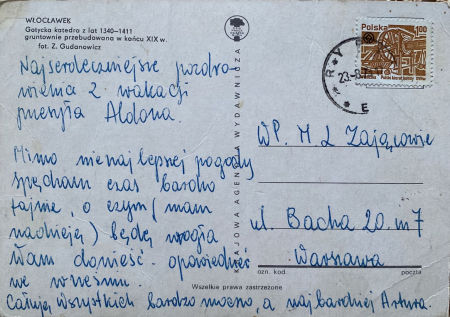 WŁOCŁAWEK
Gotycka katedra z lat 1340–1411
gruntownie przebudowana w końcu XIX w.
fot. Z. Gudanowicz
Najserdeczniejsze pozdro-
wienia z wakacji
przesyła Aldona.
Mimo nienajlepszej pogody
spędzam czas bardzo
fajnie, o czym (mam
nadzieję) będę mogła
Wam donieść
we wrześniu.
Całuję wszystkich bardzo mocno, a najbardziej Artura.
KRAJOWA AGENCJA WYDAWNICZA
Polska 1,00
WP. M L Zającowie
ul. Bacha 20 m 7
Warszawa
ozn. kod
poczta
Wszelkie prawa zastrzeżone